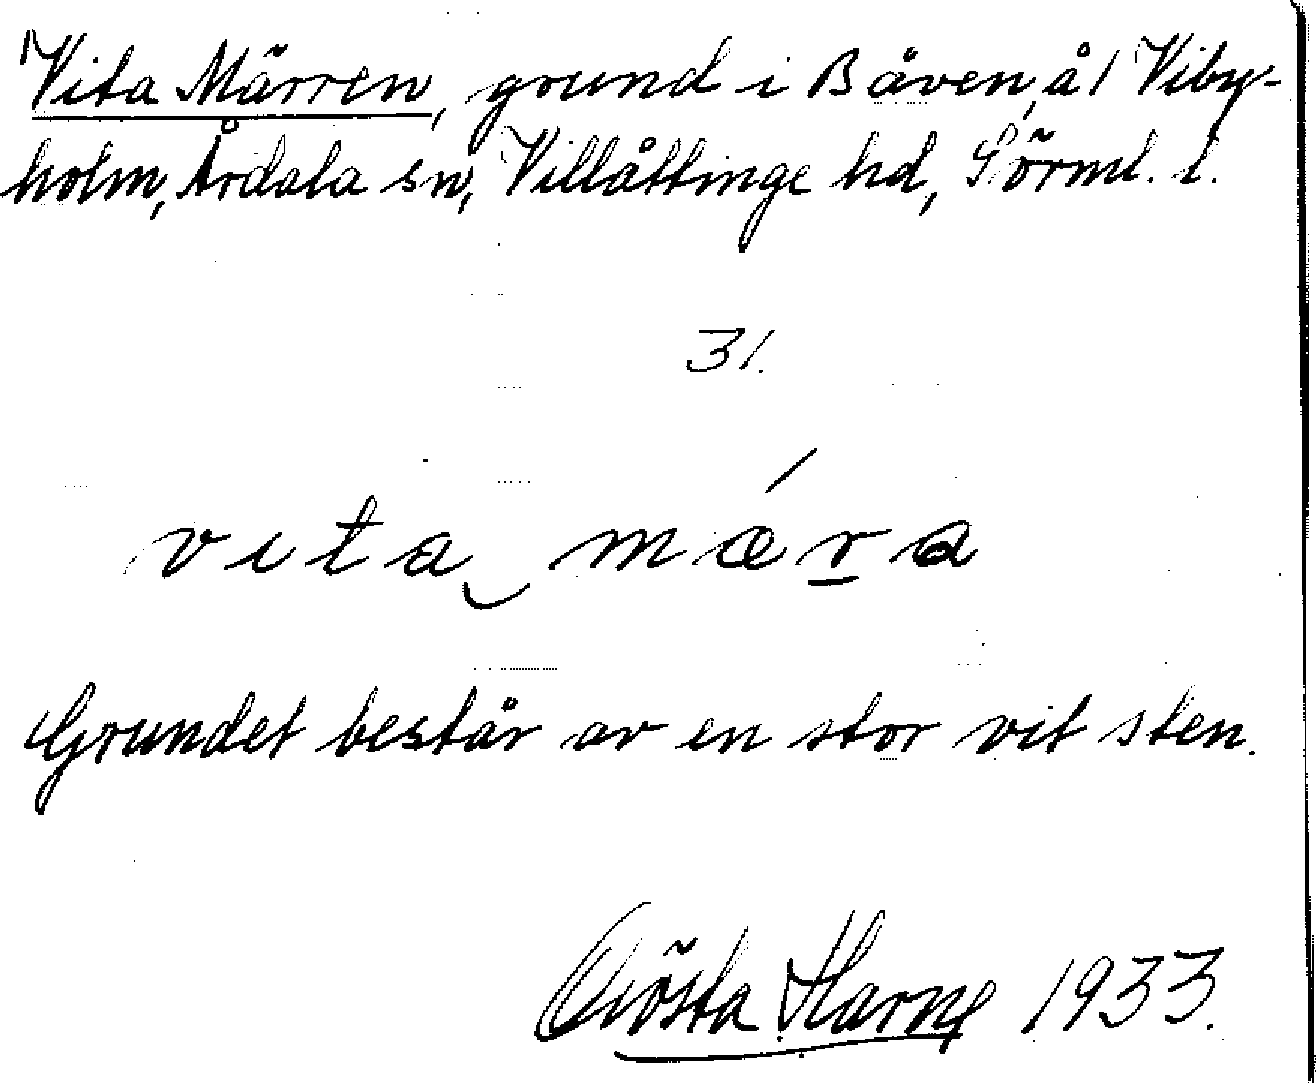 Vita Märren, grund i Båven, å/ Viby-
holm, Årdala sn, Villåttinge hd, Sörml. l.
31.
vita mǽra
Grundet består av en stor vit sten.
Gösta Harne 1933.